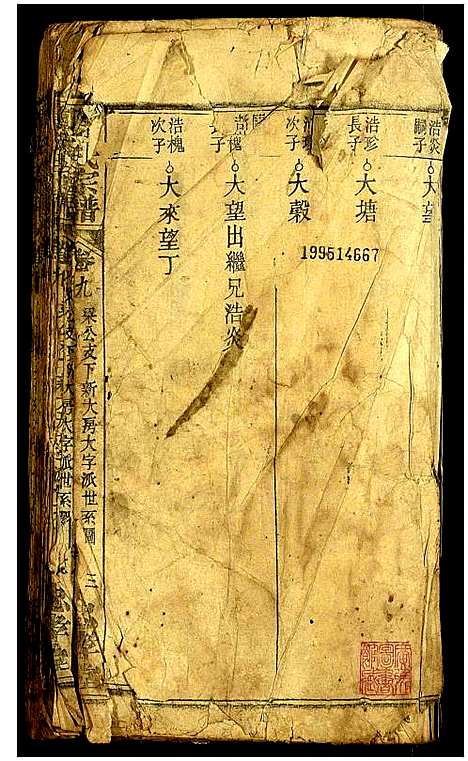 浩炎
嗣子
大望
浩珍
長子
大塘
次子
大穀
浩槐
長子
大望出繼兄浩炎
浩槐
次子
大來望丁
199514667
氏宗譜
卷九
梁公支下新大房大字派世系圖
三